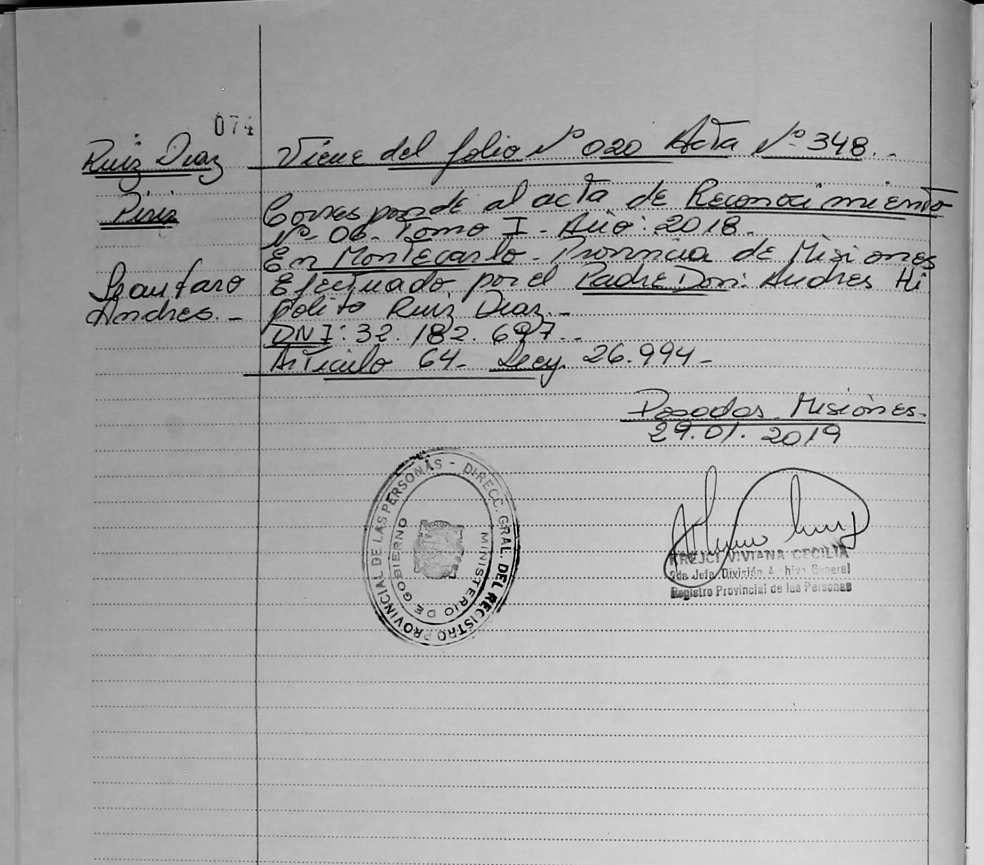 074
Ruiz Diaz
Piriz
Leautaro
Andres. -
Viene del folio Nº 020 Acta Nº 348. -
Corresponde al acta de Reconocimiento
Nº 06 - Tomo I - Año: 2018 -
En Montecarlo - Provincia de Misiones
Efectuado por el Padre Don: Andres Hi
polito Ruiz Diaz. -
DNI: 32.182.697. -
Articulo 64 - Ley 26.994 -
Posadas Misiones -
29.01.2019
DIRECC. GRAL. DEL REGISTRO PROVINCIAL DE LAS PERSONAS -
MINISTERIO DE GOBIERNO
KREJCI VIVIANA CECILIA
2da Jefa División Archivo General
Registro Provincial de las Personas